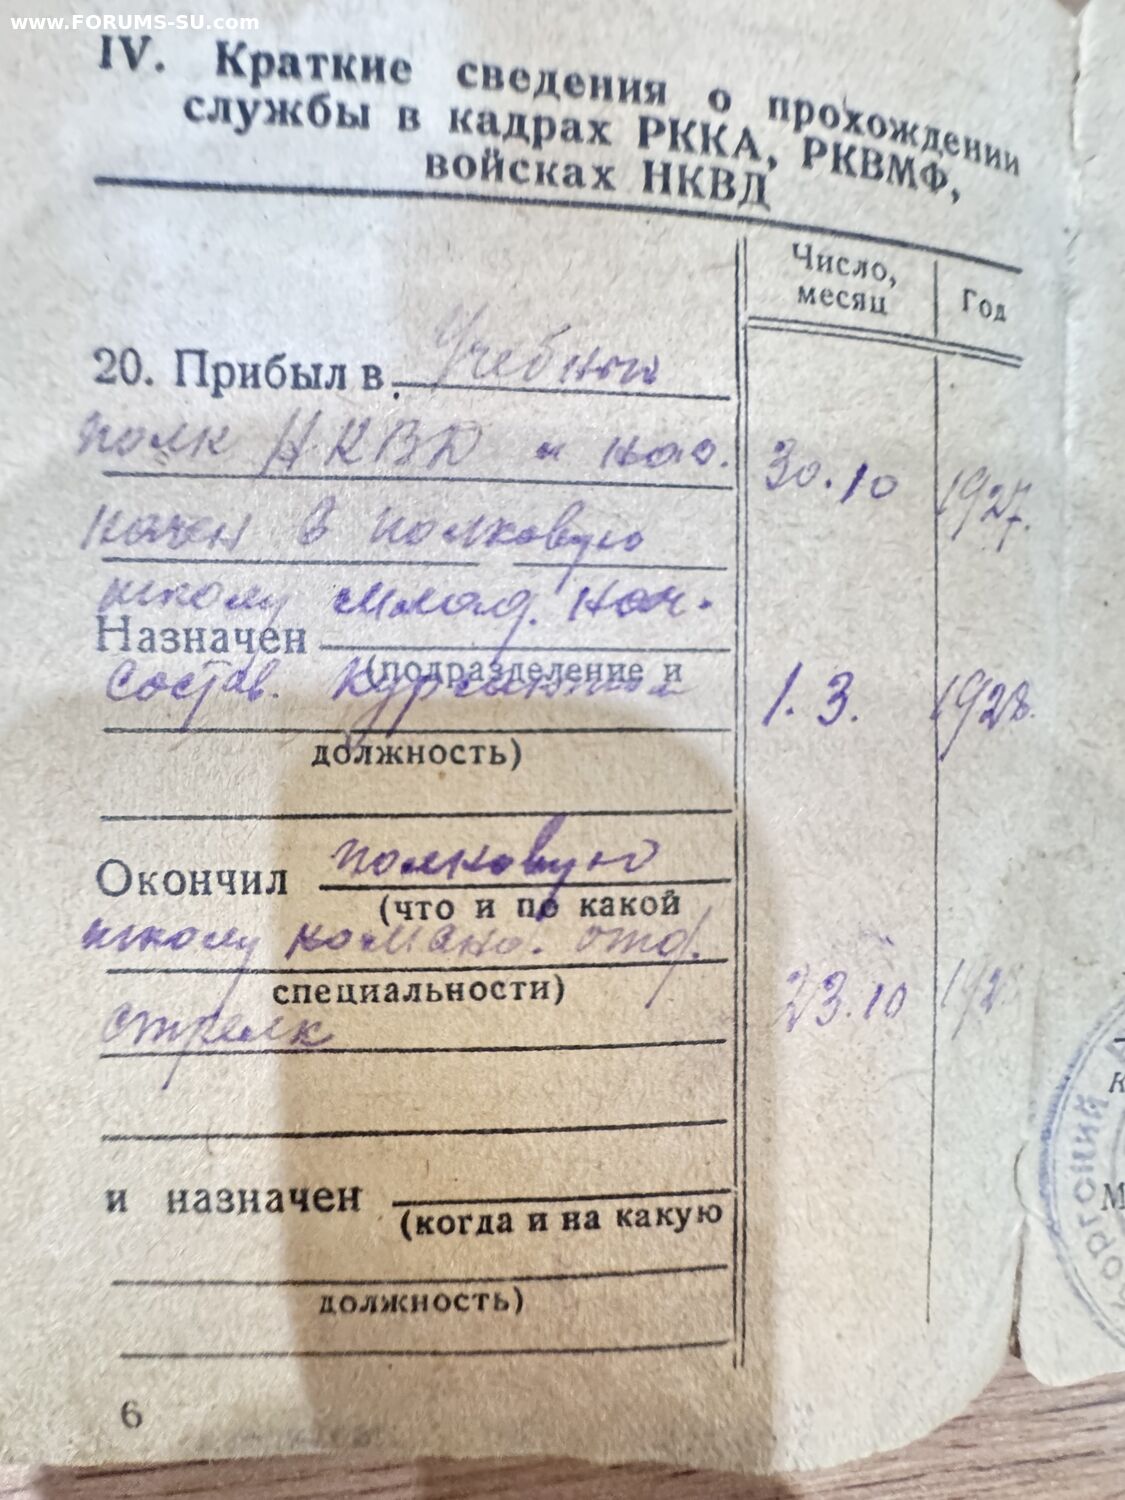 www.FORUMS-SU.com
IV. Краткие сведения о прохождении
службы в кадрах РККА, РКВМФ,
войсках НКВД
Число,
месяц
Год
20. Прибыл в Учебный
полк НКВД и наз.
30.10 1927.
начен в полковую
школу млад. нач.
Назначен
(подразделение и
состав. Курсантом
1. 3. 1928.
должность)
Окончил полковую
(что и по какой
школу команд. отд.
специальности)
стрелк
23.10
и назначен
(когда и на какую
должность)
6